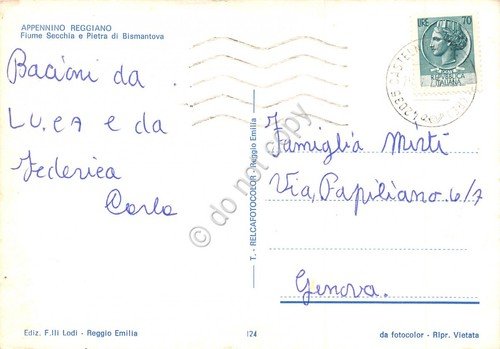 APPENNINO REGGIANO
Fiume Secchia e Pietra di Bismantova
Bacioni da
LUCA e da
Federica
Carlo
LIRE 70
T. - RELCAFOTOCOLOR - Reggio Emilia
Famiglia Mirti
Via, Papiliano 6/7
Genova.
do not copy
Ediz. F.lli Lodi - Reggio Emilia
124
da fotocolor - Ripr. Vietata